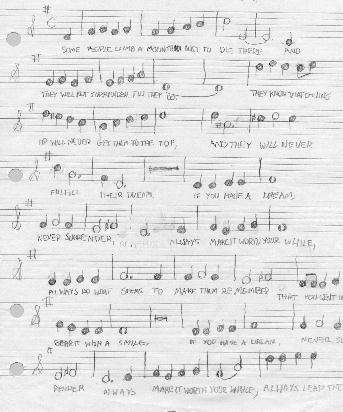 SOME PEOPLE CLIMB A MOUNTAIN JUST TO DIE THERE AND
THEY WILL NOT SURRENDER TILL THEY DO. THEY KNOW THAT
UP WILL NEVER GET THEM TO THE TOP, AND THEY WILL NEVER
FULFILL THEIR DREAM. IF YOU HAVE A DREAM,
NEVER SURRENDER. ALWAYS MAKE IT WORTH YOUR WHILE,
ALWAYS DO WHAT SEEMS TO MAKE THEM REMEMBER
THAT YOU WENT
BEAR IT WITH A SMILE. IF YOU HAVE A DREAM, NEVER
RENDER ALWAYS MAKE IT WORTH YOUR WHILE, ALWAYS LEAD THE